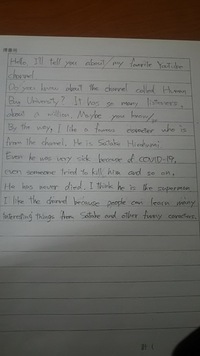 Hello. I'll tell you about my favorite YouTube
channel.
Do you know about the channel called Human
Bug University? It has so many listeners,
about a million. Maybe you know.
By the way, I like a famous character who is
from the channel. He is Satake Hirofumi.
Even he was very sick because of COVID-19,
even someone tried to kill him and so on,
He has never died. I think he is the superman.
I like the channel because people can learn many
interesting things from Satake and other funny characters.